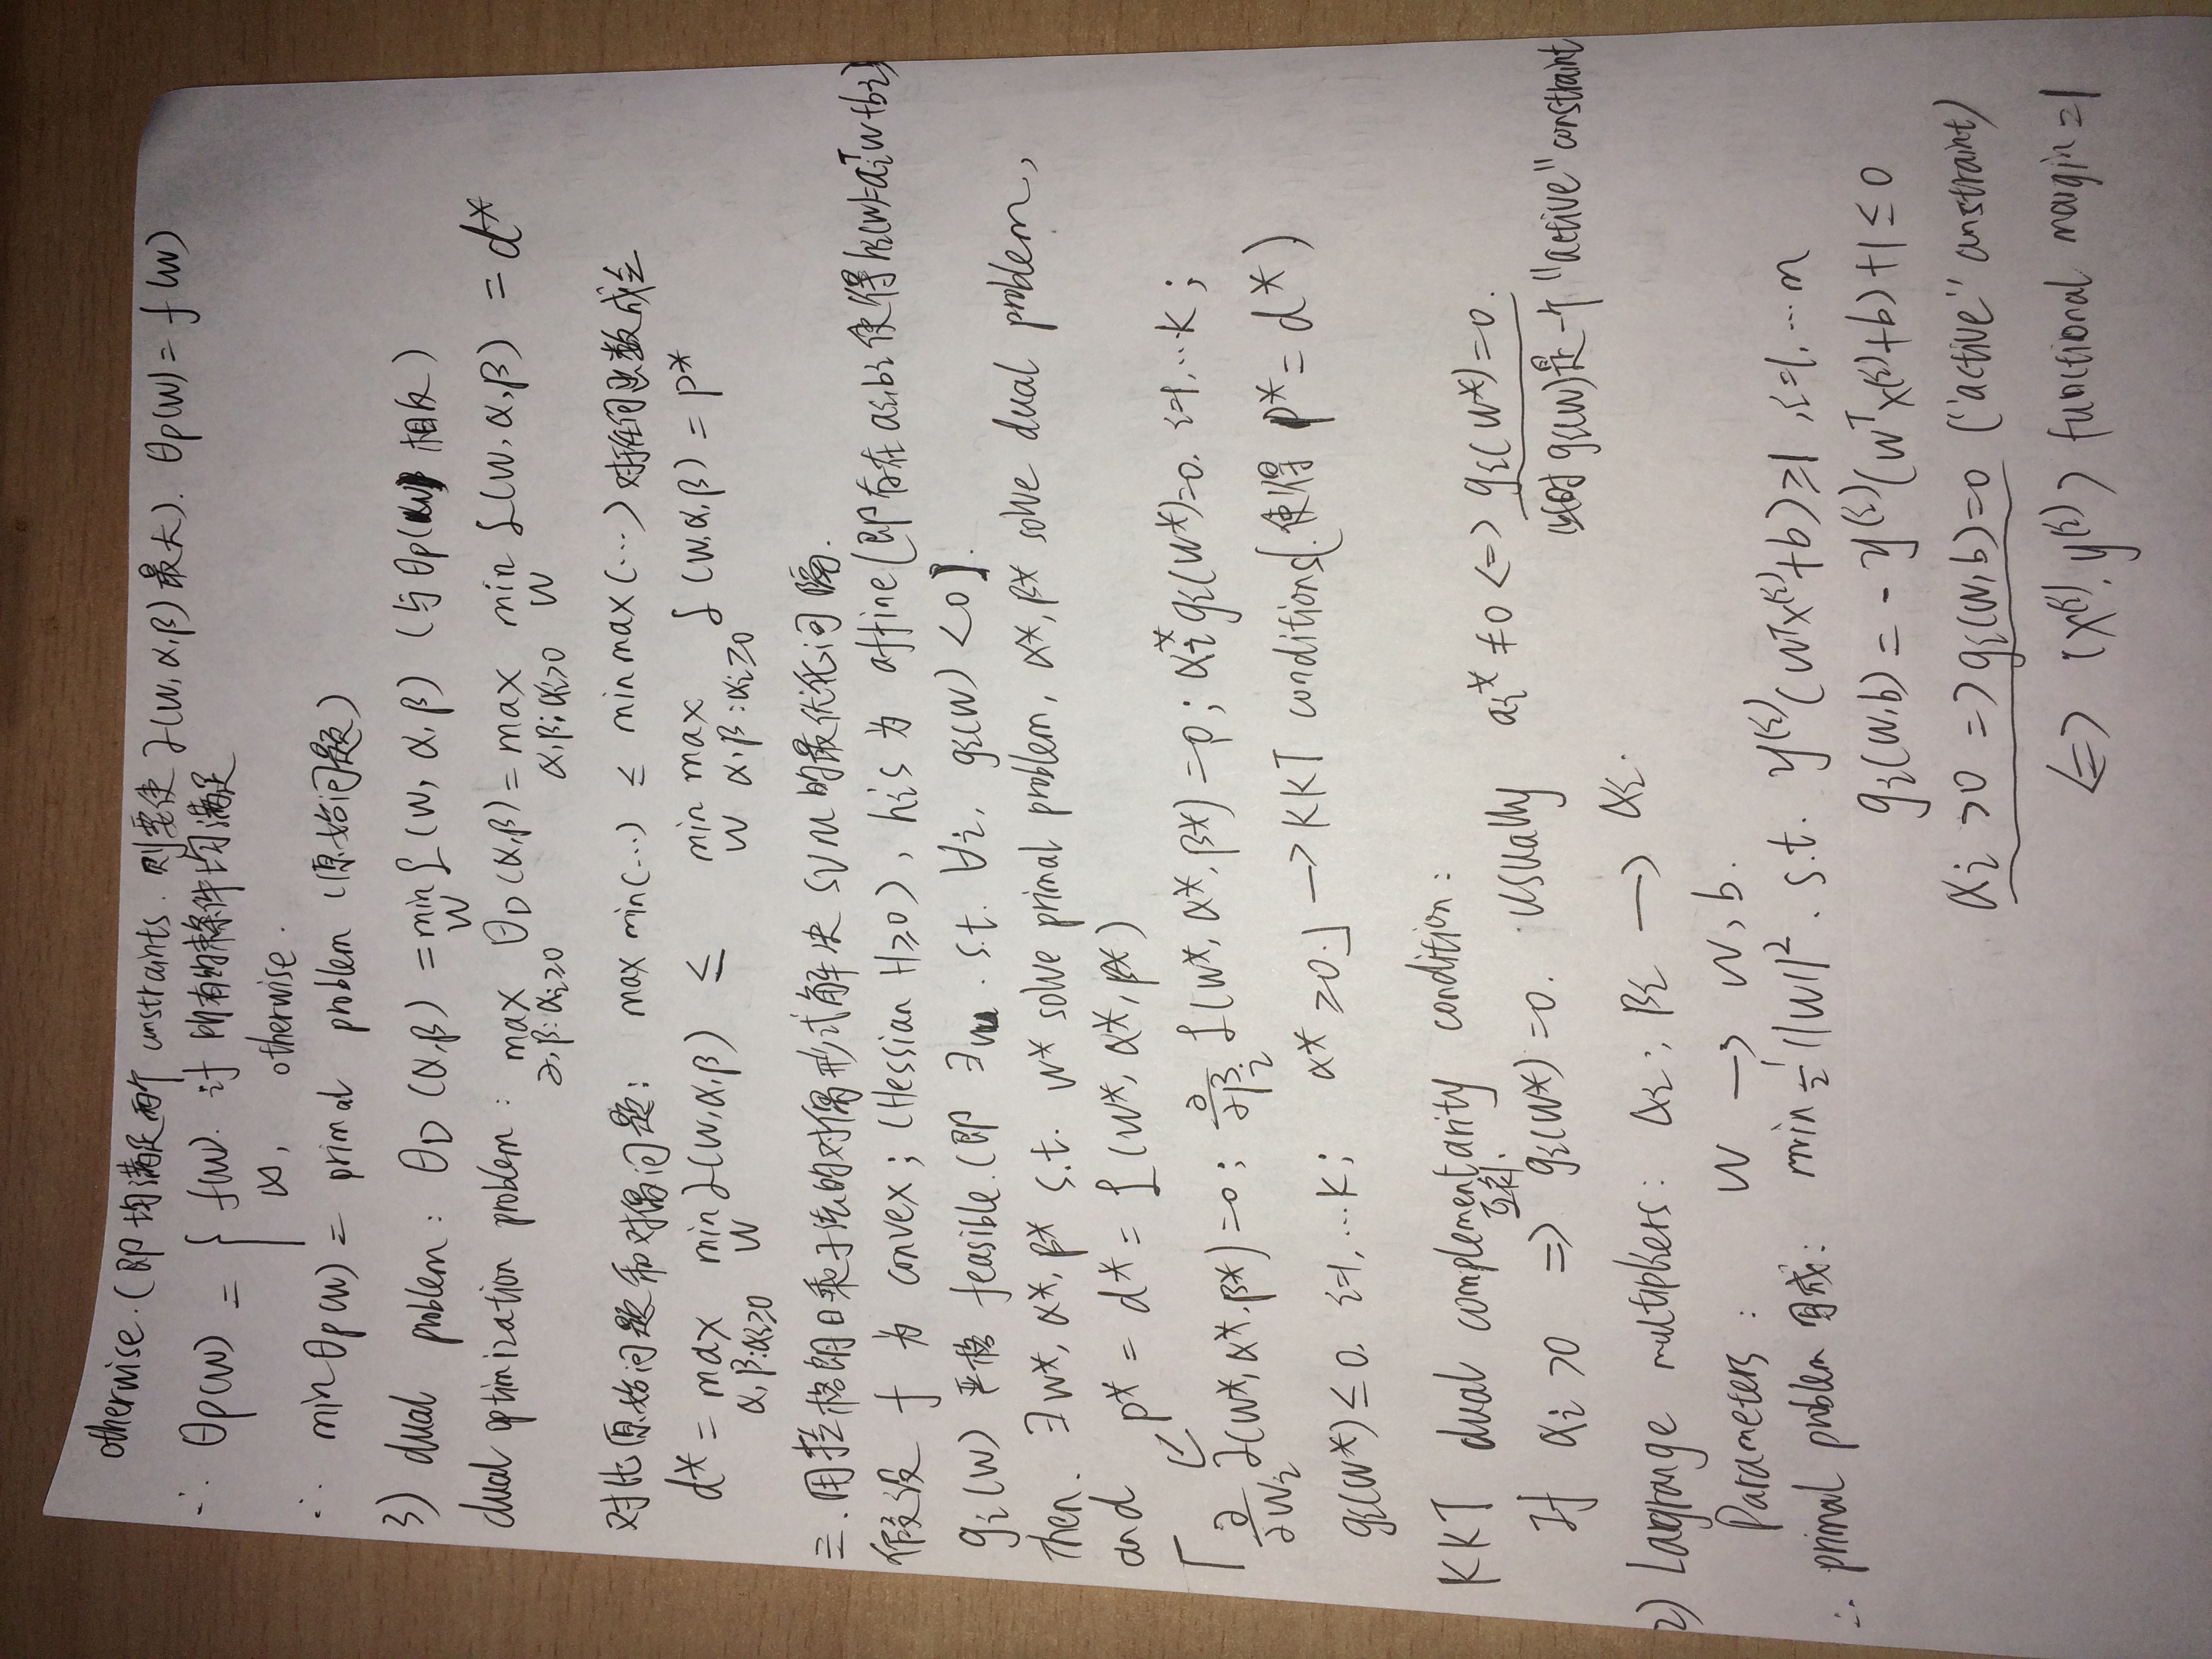 otherwise.(即均满足两个 constraints. 则要使 L(w,α,β)最大). θp(w) = f(w)
∴ θp(w) = { f(w). if 所有约束条件均满足
∞, otherwise.
∴ min θp(w) = primal problem (原始问题)
3) dual problem: θD(α,β) = min L(w, α, β) (与θp(w) 相反)
w
dual optimization problem: max θD(α,β) = max min L(w,α,β) = d*
α,β:αi≥0 α,β:αi>0 w
对比原始问题和对偶问题: max min(...) ≤ min max(...) 对于任何函数成立
d* = max min L(w,α,β) ≤ min max L(w,α,β) = p*
α,β:αi≥0 w w α,β:αi≥0
三.用拉格朗日乘子法的对偶形式解决 SVM的最优化间隔.
假设 f 为 convex; (Hessian H≥0), hi's 为 affine(即存在ai,bi使得hi(w)=aiᵀw+bi)
gi(w) 严格 feasible.(即 ∃w. s.t. ∀i, gi(w)<0).
then. ∃w*, α*, β* s.t. w* solve primal problem, α*, β* solve dual problem,
and p* = d* = L(w*, α*, β*)
「 ∂/∂wi L(w*, α*, β*)=0; ∂/∂βi L(w*, α*, β*)=0; αi* gi(w*)=0. i=1,...k;
gi(w*) ≤ 0. i=1,...k; α* ≥0.」 → KKT conditions(.使得 p* = d*)
KKT dual complementarity condition:
互补.
If αi >0 => gi(w*)=0. Usually ai* ≠0 <=> gi(w*)=0.
此时 gi(w)是一个 "active" constraint
2) Largrange multipliers: αi; βi → αi.
Parameters: w → w, b.
∴ primal problem 写成: min ½||w||². s.t. y⁽ⁱ⁾(wᵀx⁽ⁱ⁾+b)≥1, i=1,...m
gi(w,b) = - y⁽ⁱ⁾(wᵀx⁽ⁱ⁾+b)+1 ≤ 0
αi >0 => gi(w,b)=0 ("active" constraint)
<=> (x⁽ⁱ⁾, y⁽ⁱ⁾) functional margin =1